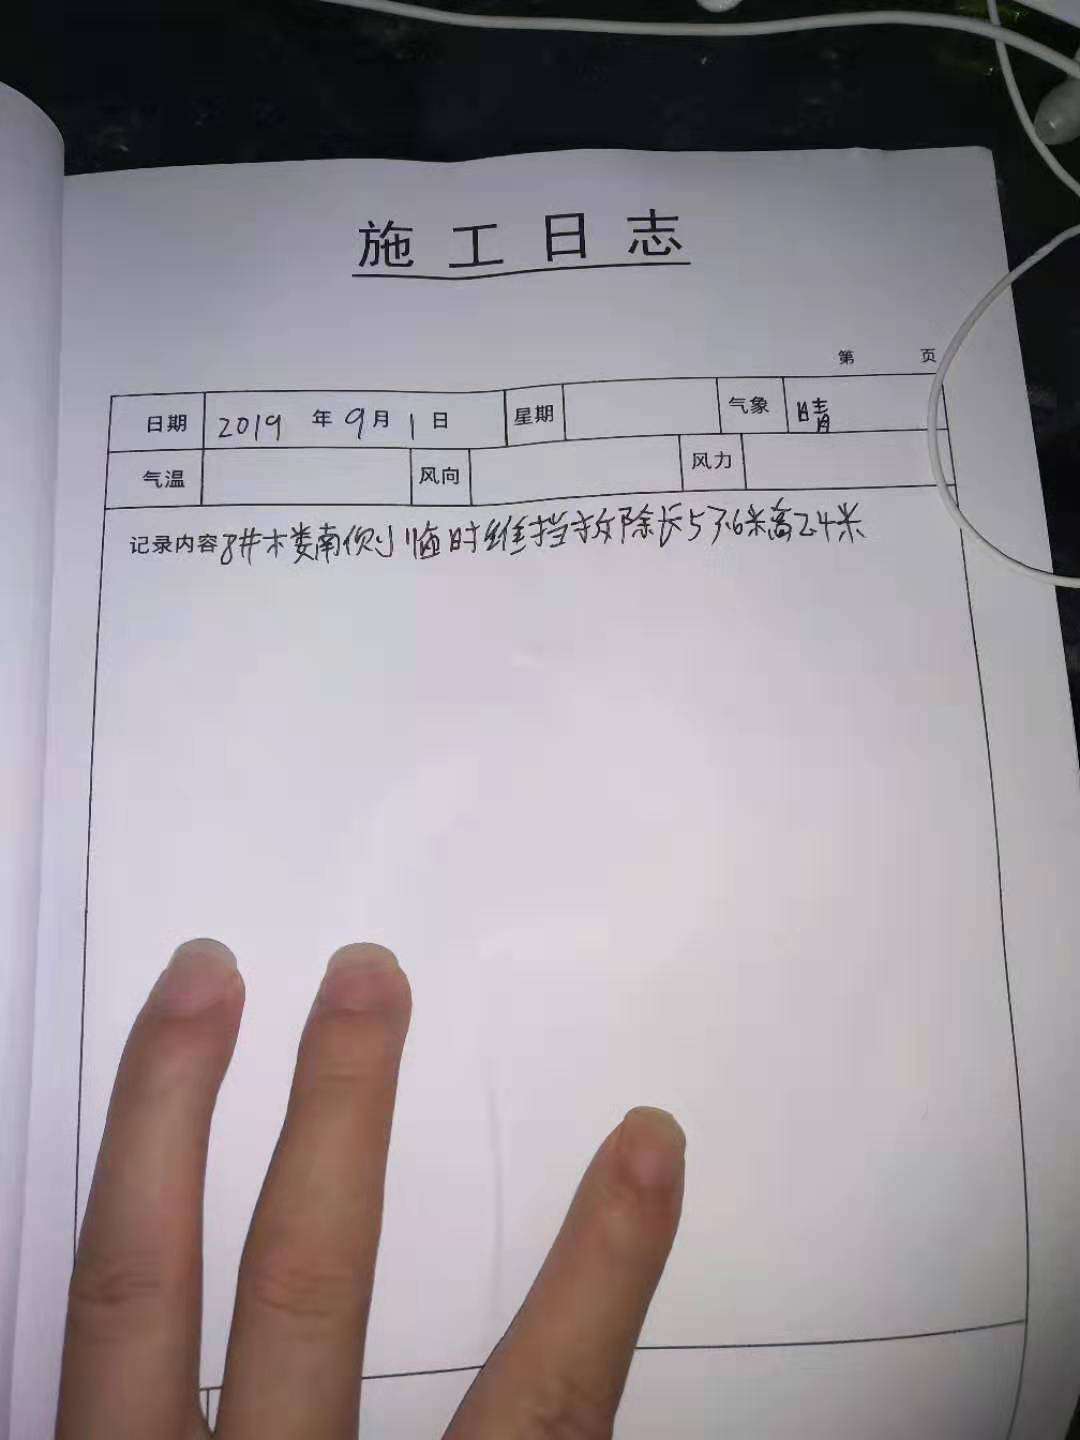 施工日志
第 页
日期 2019 年 9月 1 日 星期 气象 晴
气温 风向 风力
记录内容 8#楼南侧临时维挡拆除长57.6米高2.4米